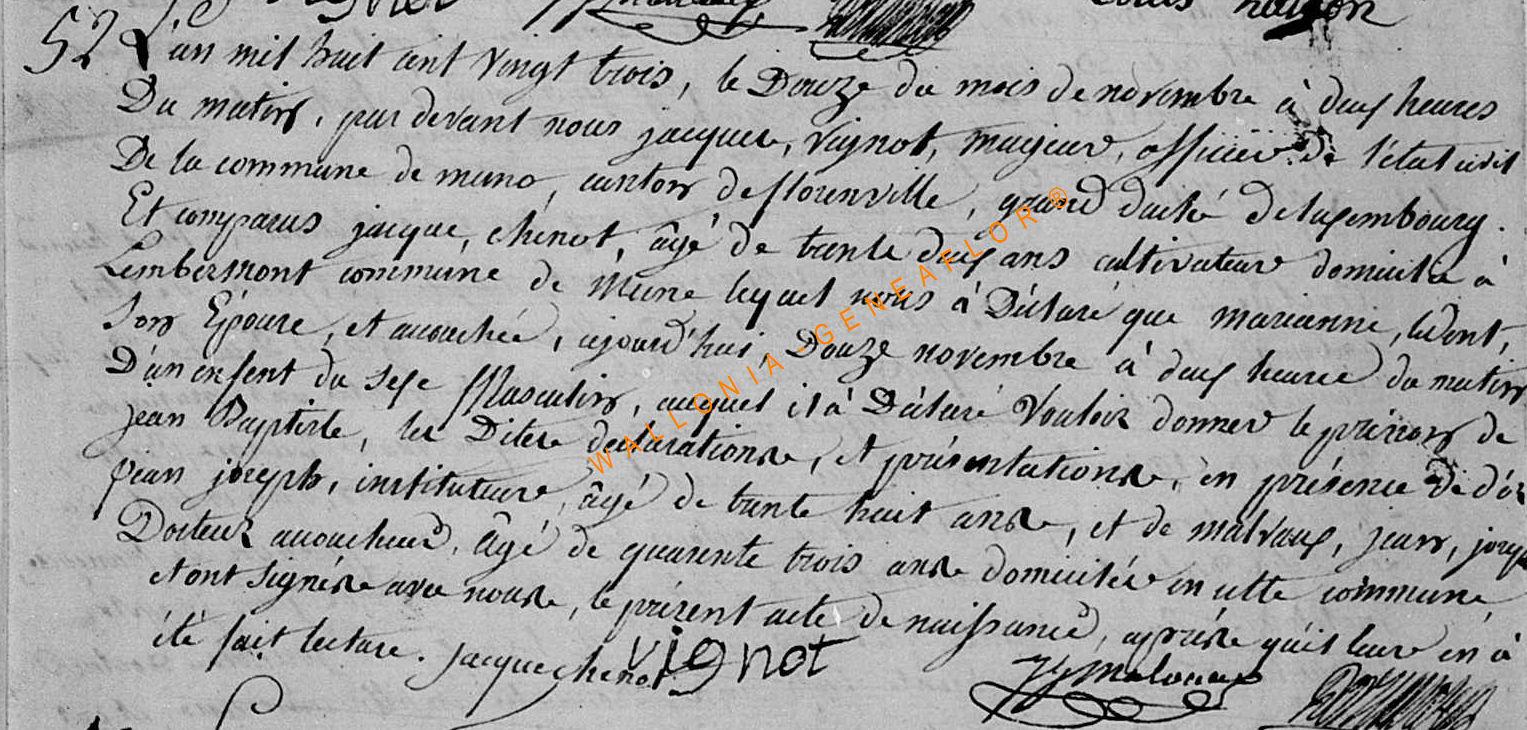 Louis
52 L'an mil huit cent vingt trois, le Douze du mois de novembre à deux heures
Du matin, par devant nous jacques, vignot, mayeur, officier de l'état civil
De la commune de muno, canton de florenville, grand duché deluxembourg.
Et comparus jacque, chénot, âgé de trente deux ans cultivateur domicilié à
Lembermont commune de Mune lequel nous à Déclaré que marianne,
Son Epouse, et accouchée, ajourd'hui, Douze novembre à deux heures du matin
D'un enfent du sexe Masculin, auquel il à Déclaré Vouloir donner le prénom de
jean Baptiste, les Dites declarations, et présentations, en présence de
jean joseph, instituteur, âgé de trente huit ans, et de malvaux, jean, joseph
Docteur accoucheur, âgé de quarente trois ans domiciliés en cette commune,
et ont signés avec nous, le présent acte de naissance, après qu'il leur en à
été fait lecture. jacque chenot vignot
WALLONIA-GENEAFLOR®